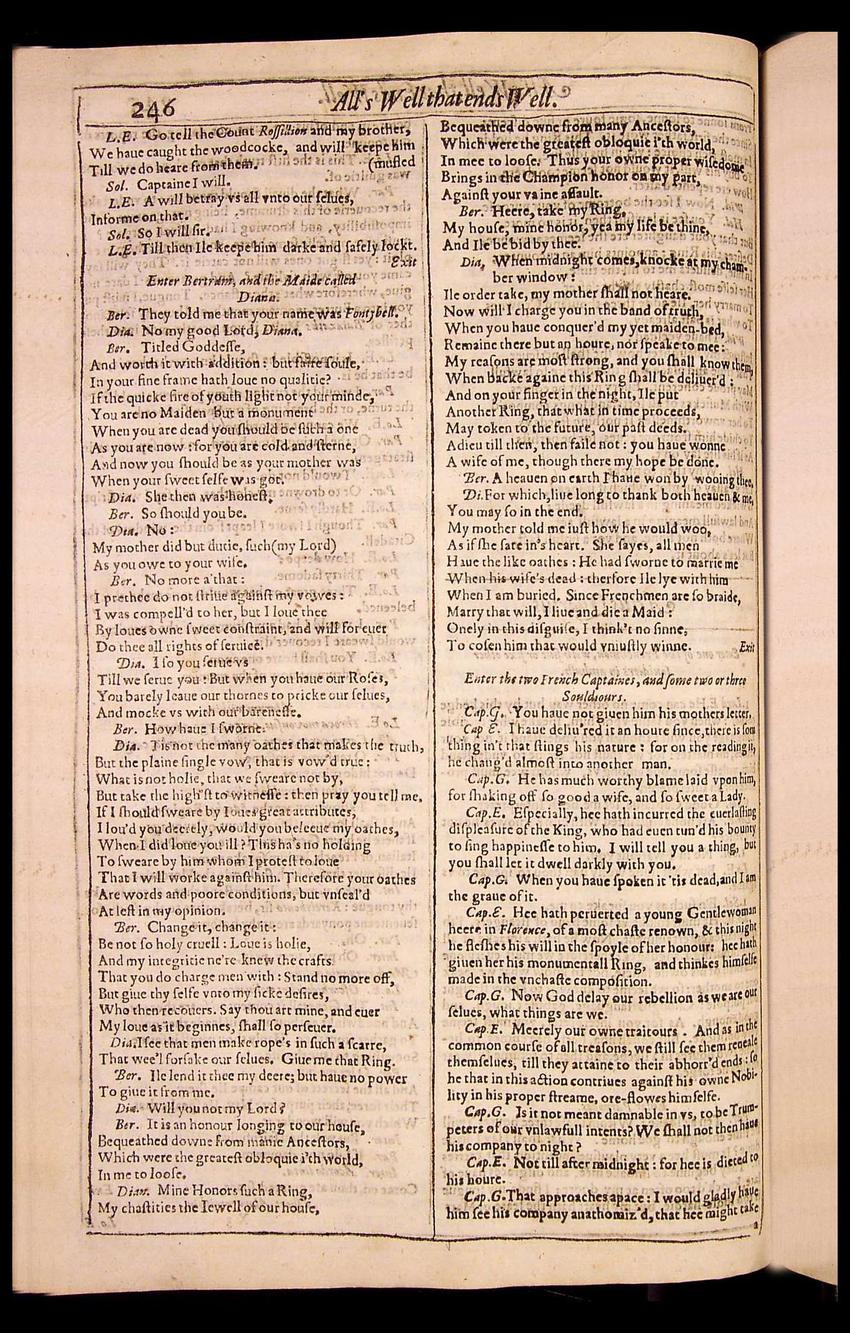 246
All's Well that ends Well.
L.E. Go tell the Count Rossillion and my brother,
We haue caught the woodcocke, and will keepe him
Till we do heare from them. (mufled
Sol. Captaine I will.
L.E. A will betray vs all vnto our selues,
Informe on that.
Sol. So I will sir.
L.E. Till then Ile keepe him darke and safely lockt.
Exit
Enter Bertram, and the Maide called
Diana.
Ber. They told me that your name was Fontybell.
Dia. No my good Lord, Diana.
Ber. Titled Goddesse,
And worth it with addition: but faire soule,
In your fine frame hath loue no qualitie?
If the quicke fire of youth light not your minde,
You are no Maiden but a monument
When you are dead you should be such a one
As you are now: for you are cold and sterne,
And now you should be as your mother was
When your sweet selfe was got.
Dia. She then was honest.
Ber. So should you be.
Dia. No:
My mother did but dutie, such (my Lord)
As you owe to your wife.
Ber. No more a'that:
I prethee do not striue against my vowes:
I was compell'd to her, but I loue thee
By loues owne sweet constraint, and will for euer
Do thee all rights of seruice.
Dia. I so you serue vs
Till we serue you: But when you haue our Roses,
You barely leaue our thornes to pricke our selues,
And mocke vs with our barenesse.
Ber. How haue I sworne.
Dia. Tis not the many oathes that makes the truth,
But the plaine single vow, that is vow'd true:
What is not holie, that we sweare not by,
But take the high'st to witnesse: then pray you tell me,
If I should sweare by Ioues great attributes,
I lou'd you deerely, would you beleeue my oathes,
When I did loue you ill? This ha's no holding
To sweare by him whom I protest to loue
That I will worke against him. Therefore your oathes
Are words and poore conditions, but vnseal'd
At lest in my opinion.
Ber. Change it, change it:
Be not so holy cruell: Loue is holie,
And my integritie ne're knew the crafts
That you do charge men with: Stand no more off,
But giue thy selfe vnto my sicke desires,
Who then recouers. Say thou art mine, and euer
My loue as it beginnes, shall so perseuer.
Dia. I see that men make rope's in such a scarre,
That wee'l forsake our selues. Giue me that Ring.
Ber. Ile lend it thee my deere; but haue no power
To giue it from me.
Dia. Will you not my Lord?
Ber. It is an honour longing to our house,
Bequeathed downe from manie Ancestors,
Which were the greatest obloquie i'th world,
In me to loose.
Dian. Mine Honors such a Ring,
My chastities the Iewell of our house,
Bequeathed downe from many Ancestors,
Which were the greatest obloquie i'th world,
In mee to loose. Thus your owne proper wisedome
Brings in the Champion honor on my part,
Against your vaine assault.
Ber. Heere, take my Ring,
My house, mine honor, yea my life be thine,
And Ile be bid by thee.
Dia, When midnight comes, knocke at my cham-
ber window:
Ile order take, my mother shall not heare.
Now will I charge you in the band of truth,
When you haue conquer'd my yet maiden-bed,
Remaine there but an houre, nor speake to mee:
My reasons are most strong, and you shall know them,
When backe againe this Ring shall be deliuer'd:
And on your finger in the night, Ile put
Another Ring, that what in time proceeds,
May token to the future, our past deeds.
Adieu till then, then faile not: you haue wonne
A wife of me, though there my hope be done.
Ber. A heauen on earth I haue won by wooing thee,
Di. For which, liue long to thank both heauen & me,
You may so in the end.
My mother told me iust how he would woo,
As if she sate in's heart. She sayes, all men
Haue the like oathes: He had sworne to marrie me
When his wife's dead: therfore Ile lye with him
When I am buried. Since Frenchmen are so braide,
Marry that will, I liue and die a Maid:
Onely in this disguise, I think't no sinne,
To cosen him that would vniustly winne. Exit
Enter the two French Captaines, and some two or three
Souldiours.
Cap.G. You haue not giuen him his mothers letter.
Cap E. I haue deliu'red it an houre since, there is som
thing in't that stings his nature: for on the reading it,
he chang'd almost into another man.
Cap.G. He has much worthy blame laid vpon him,
for shaking off so good a wife, and so sweet a Lady.
Cap.E. Especially, hee hath incurred the euerlasting
displeasure of the King, who had euen tun'd his bounty
to sing happinesse to him. I will tell you a thing, but
you shall let it dwell darkly with you.
Cap.G. When you haue spoken it 'tis dead, and I am
the graue of it.
Cap.E. Hee hath peruerted a young Gentlewoman
heere in Florence, of a most chaste renown, & this night
he fleshes his will in the spoyle of her honour: hee hath
giuen her his monumentall Ring, and thinkes himselfe
made in the vnchaste composition.
Cap.G. Now God delay our rebellion as we are our
selues, what things are we.
Cap.E. Meerely our owne traitours. And as in the
common course of all treasons, we still see them reueale
themselues, till they attaine to their abhorr'd ends: so
he that in this action contriues against his owne Nobi-
lity in his proper streame, ore-flowes himselfe.
Cap.G. Is it not meant damnable in vs, to be Trum-
peters of our vnlawfull intents? We shall not then haue
his company to night?
Cap.E. Not till after midnight: for hee is dieted to
his houre.
Cap.G. That approaches apace: I would gladly haue
him see his company anathomiz'd, that hee might take
a